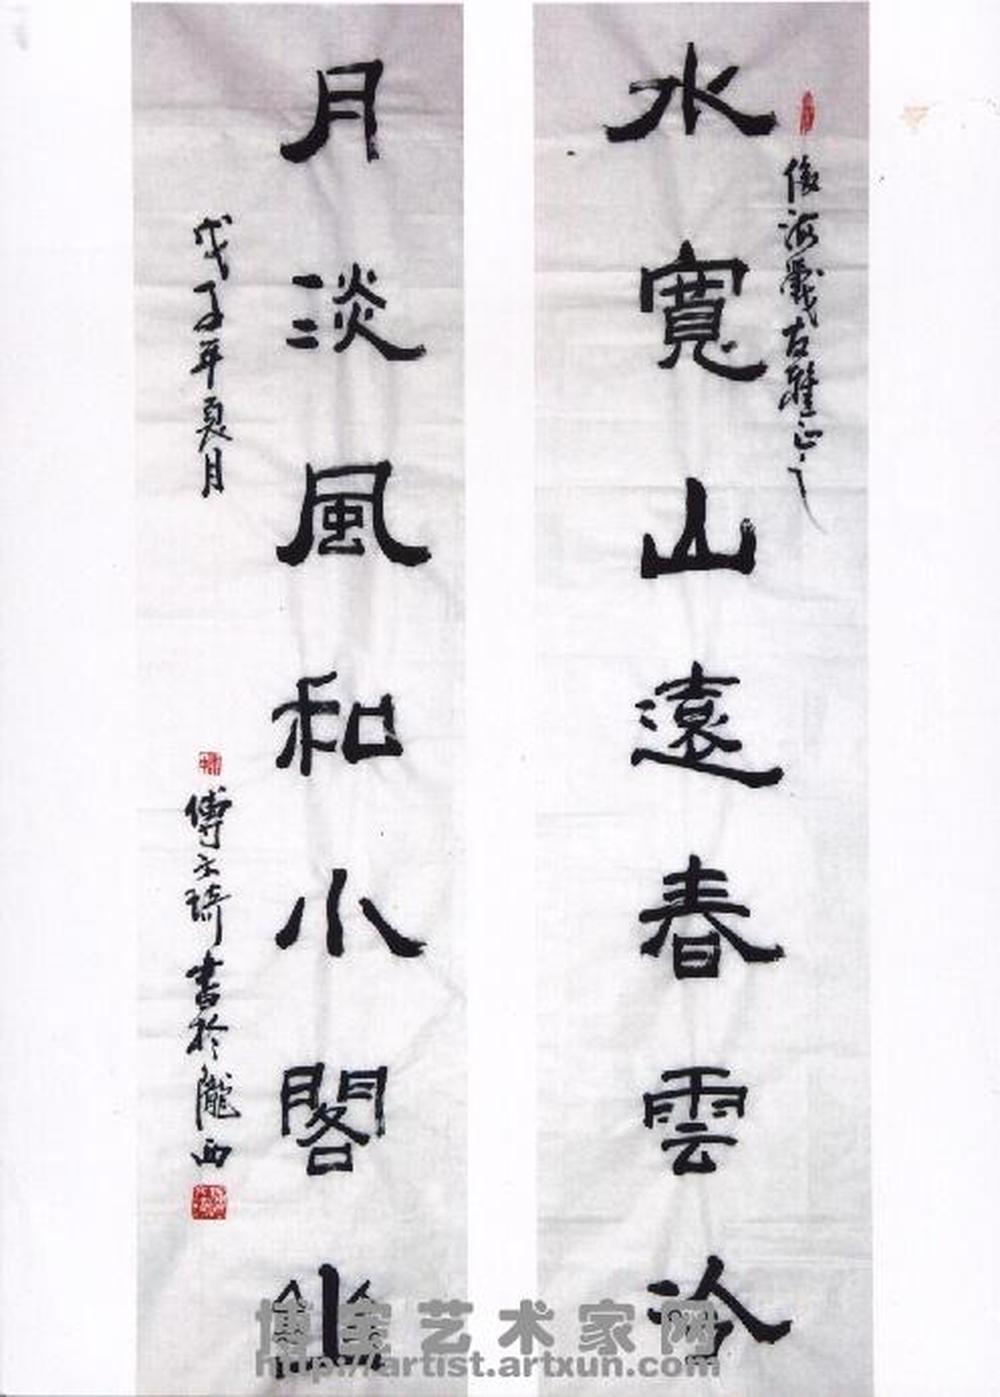 海戰友雅正之
水寬山遠春雲冷
月淡風和小閣幽
戊子年夏月
傅琦書於隴西
博宝艺术家网
http://artist.artxun.com